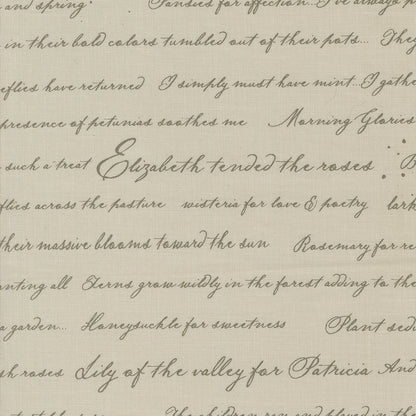 and spring. Pansies for affection... I've always p
in their bold colors tumbled out of their pots... They
eflies have returned I simply must have mint... I gathe
presence of petunias soothes me Morning Glories
such a treat Elizabeth tended the roses B
flies across the pasture wisteria for love & poetry lark
their massive blooms toward the sun Rosemary for re
anting all Ferns grow wildly in the forest adding to the
a garden... Honeysuckle for sweetness Plant sed
sh roses Lily of the valley for Patricia And
The children ran and played in the